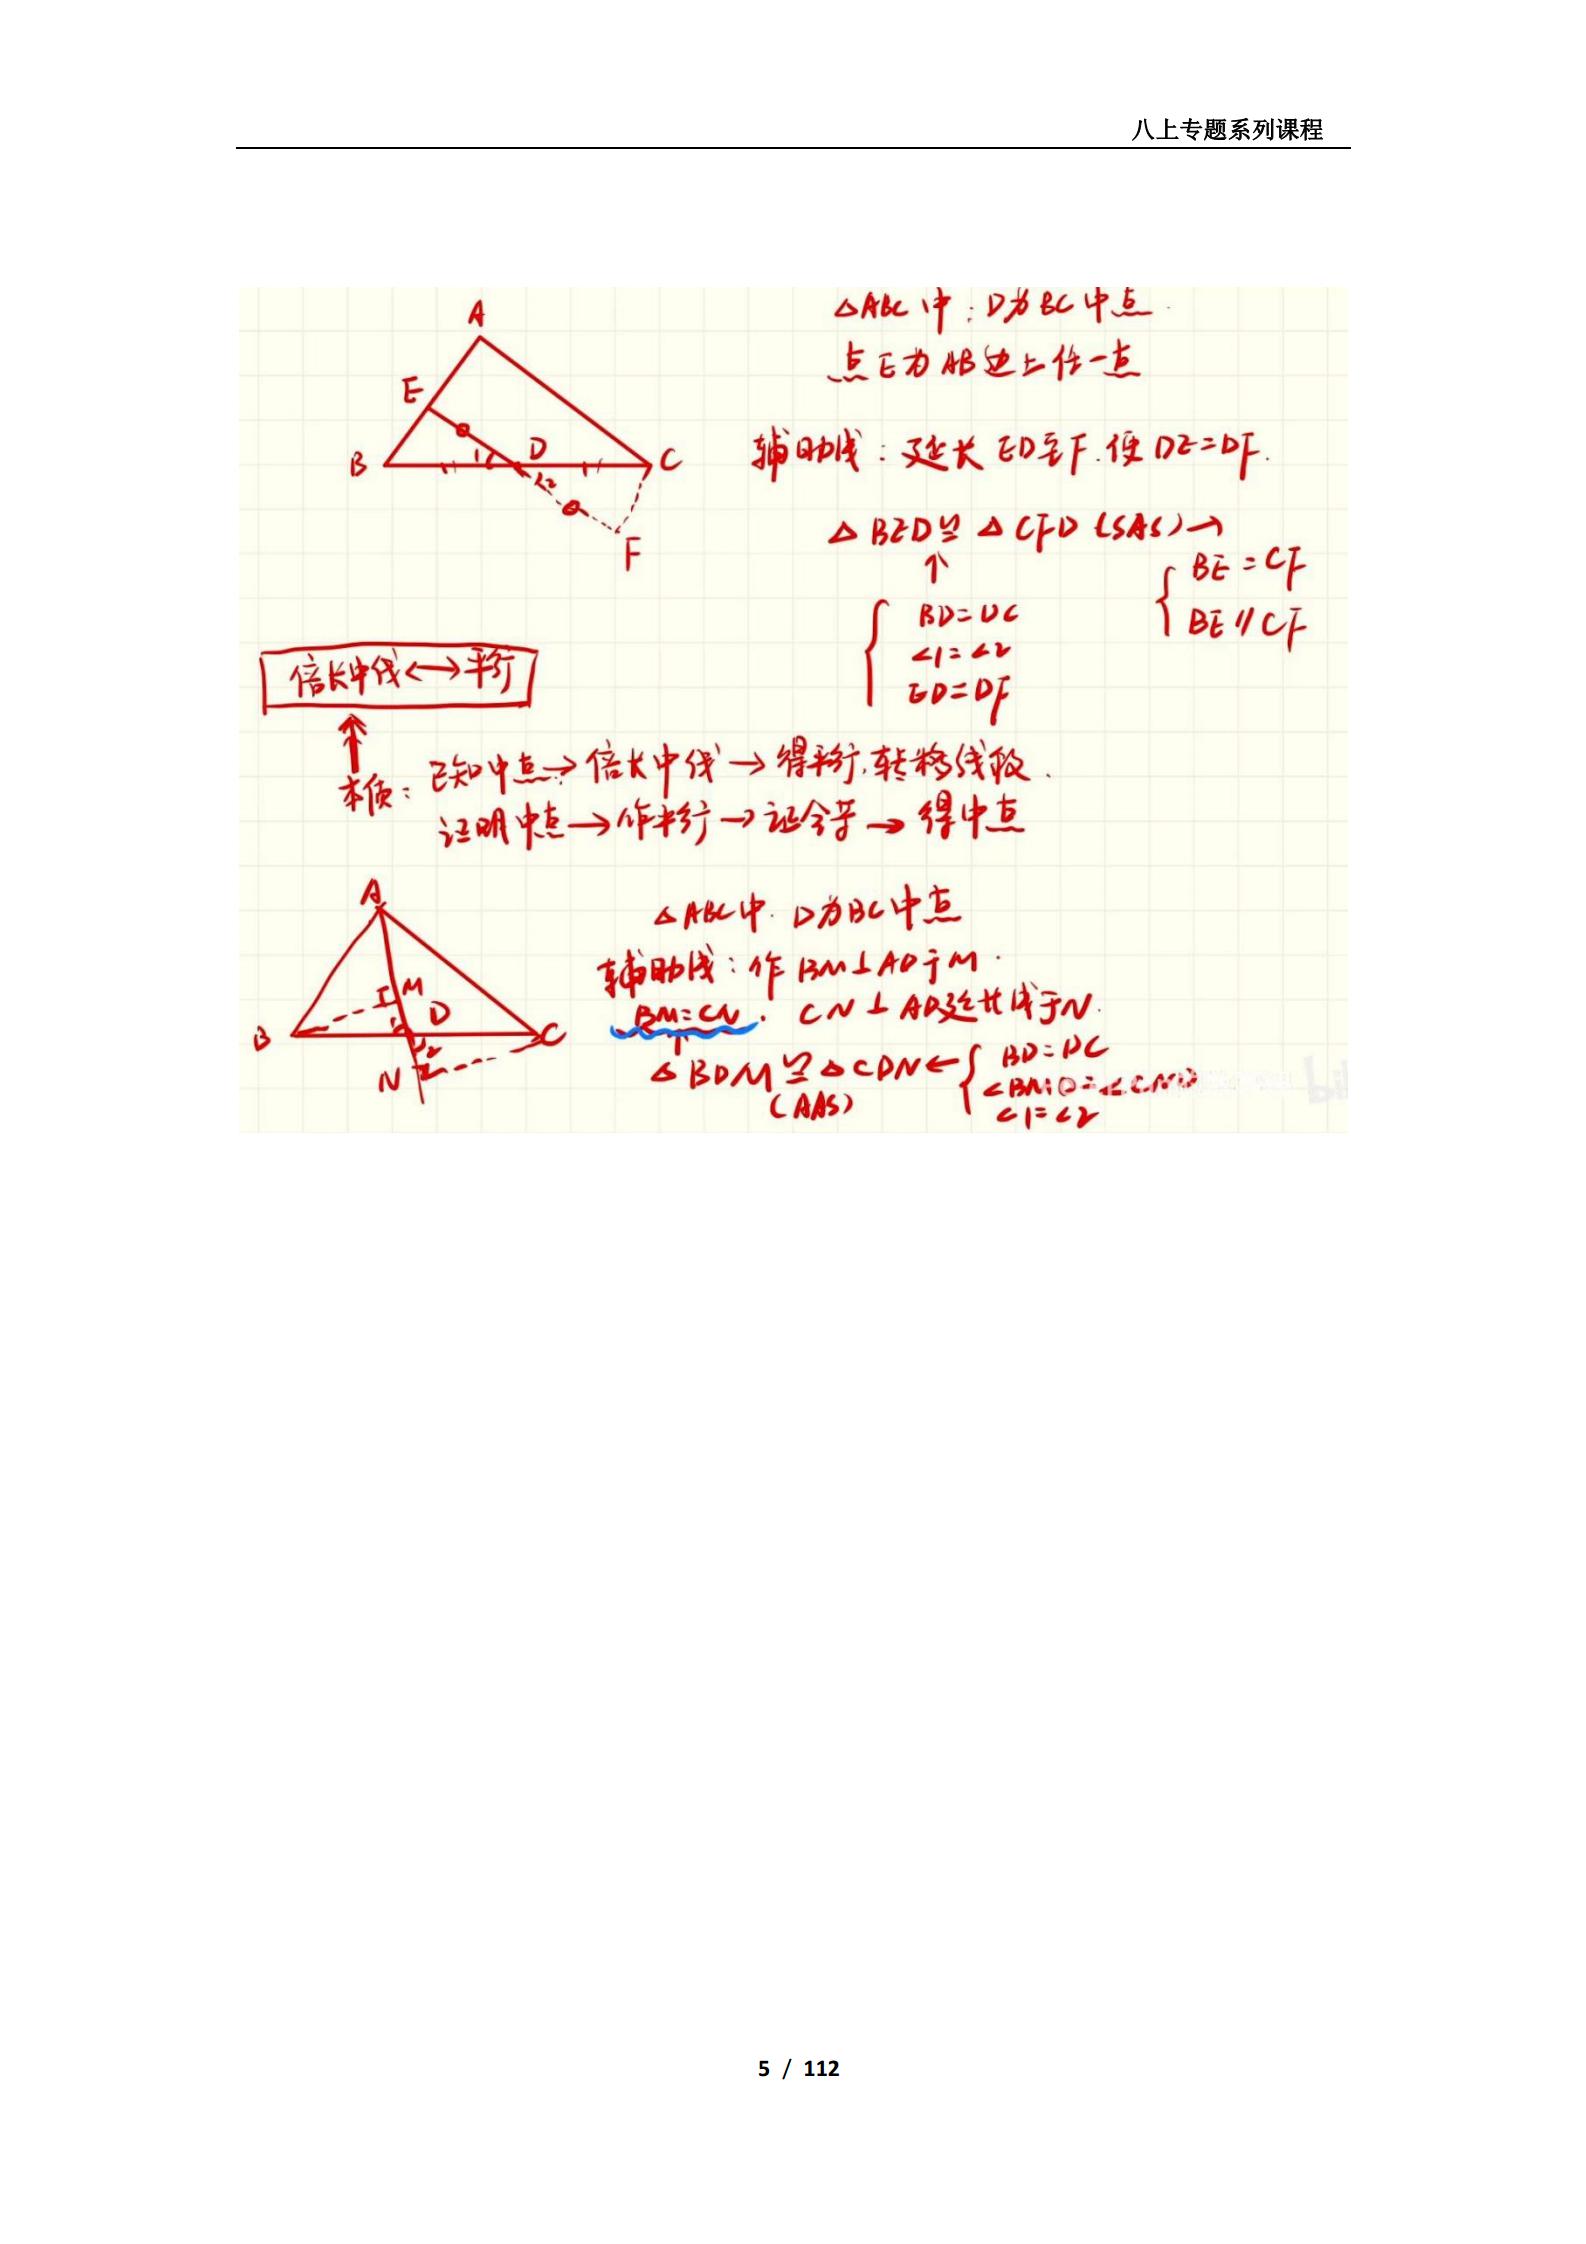 八上专题系列课程
A
E
B
D
C
1
2
F
△ABC中: D为BC中点.
点E为AB边上任一点
辅助线: 延长ED至F.使DE=DF.
△BED≌△CFD (SAS)→
BE=CF
BE∥CF
↑
BD=DC
∠1=∠2
ED=DF
倍长中线↔平行
本质: 已知中点→倍长中线→得平行.转移线段.
证明中点→作平行→证全等→得中点
A
M
D
B
C
1
2
N
△ABC中. D为BC中点
辅助线: 作BM⊥AD于M.
BM=CN. CN⊥AD延长线于N.
↑
△BDM≌△CDN←
(AAS)
BD=DC
∠BMD=
∠1=∠2
5 / 112